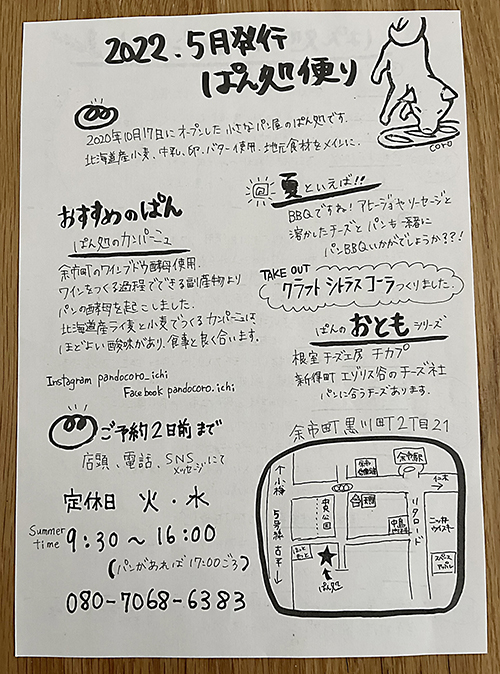 2022.5月発行
ぱん処便り
coro
2020年10月17日にオープンした小さなパン屋のぱん処です.
北海道産小麦、牛乳、卵、バター使用.地元食材をメインに.
おすすめのぱん
ぱん処のカンパーニュ
余市町のワインブドウ酵母使用.
ワインをつくる過程でできる副産物より
パンの酵母を起こしました.
北海道産ライ麦と小麦でつくるカンパーニュは
ほどよい酸味があり、食事と良く合います.
Instagram pandocoro_ichi
Facebook pandocoro.ichi
ご予約2日前まで
店頭、電話、SNSにて
メッセージ
定休日 火・水
Summer time
9:30〜16:00
(パンがあれば17:00ごろ)
080-7068-6383
夏といえば!!
BBQですね!アヒージョやソーセージと
溶かしたチーズとパンも一緒に
パンBBQいかがでしょうか??!
TAKE OUT
クラフトシトラスコーラつくりました.
ぱんのおともシリーズ
根室 チーズ工房 チカプ
新得町 エゾリス谷のチーズ社
パンに合うチーズあります.
余市町黒川町2丁目21
余市駅
↑小樽
5号線
古平↓
中央公園
リタロード
仁木
ニッカウイスキー
ぱん処